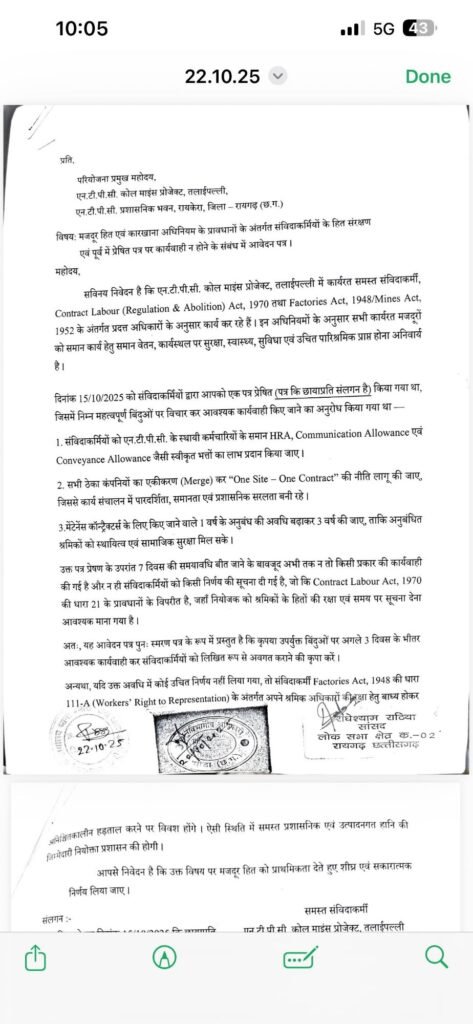 10:05
5G 43
22.10.25
Done
प्रति,
परियोजना प्रमुख महोदय,
एन.टी.पी.सी. कोल माइंस प्रोजेक्ट, तलाईपल्ली,
एन.टी.पी.सी. प्रशासनिक भवन, रायकेरा, जिला – रायगढ़ (छ.ग.)
विषय: मजदूर हित एवं कारखाना अधिनियम के प्रावधानों के अंतर्गत संविदाकर्मियों के हित संरक्षण
एवं पूर्व में प्रेषित पत्र पर कार्यवाही न होने के संबंध में आवेदन पत्र।
महोदय,
सविनय निवेदन है कि एन.टी.पी.सी. कोल माइंस प्रोजेक्ट, तलाईपल्ली में कार्यरत समस्त संविदाकर्मी,
Contract Labour (Regulation & Abolition) Act, 1970 तथा Factories Act, 1948/Mines Act,
1952 के अंतर्गत प्रदत्त अधिकारों के अनुसार कार्य कर रहे हैं। इन अधिनियमों के अनुसार सभी कार्यरत मजदूरों
को समान कार्य हेतु समान वेतन, कार्यस्थल पर सुरक्षा, स्वास्थ्य, सुविधा एवं उचित पारिश्रमिक प्राप्त होना अनिवार्य
है।
दिनांक 15/10/2025 को संविदाकर्मियों द्वारा आपको एक पत्र प्रेषित (पत्र कि छायाप्रति संलगन है) किया गया था,
जिसमें निम्न महत्वपूर्ण बिंदुओं पर विचार कर आवश्यक कार्यवाही किए जाने का अनुरोध किया गया था —
1. संविदाकर्मियों को एन.टी.पी.सी. के स्थायी कर्मचारियों के समान HRA, Communication Allowance एवं
Conveyance Allowance जैसी स्वीकृत भत्तों का लाभ प्रदान किया जाए।
2. सभी ठेका कंपनियों का एकीकरण (Merge) कर “One Site – One Contract” की नीति लागू की जाए,
जिससे कार्य संचालन में पारदर्शिता, समानता एवं प्रशासनिक सरलता बनी रहे।
3.मेंटेनेंस कॉन्ट्रैक्टर्स के लिए किए जाने वाले 1 वर्ष के अनुबंध की अवधि बढ़ाकर 3 वर्ष की जाए, ताकि अनुबंधित
श्रमिकों को स्थायित्व एवं सामाजिक सुरक्षा मिल सके।
उक्त पत्र प्रेषण के उपरांत 7 दिवस की समयावधि बीत जाने के बावजूद अभी तक न तो किसी प्रकार की कार्यवाही
की गई है और न ही संविदाकर्मियों को किसी निर्णय की सूचना दी गई है, जो कि Contract Labour Act, 1970
की धारा 21 के प्रावधानों के विपरीत है, जहाँ नियोजक को श्रमिकों के हितों की रक्षा एवं समय पर सूचना देना
आवश्यक माना गया है।
अतः, यह आवेदन पत्र पुनः स्मरण पत्र के रूप में प्रस्तुत है कि कृपया उपर्युक्त बिंदुओं पर अगले 3 दिवस के भीतर
आवश्यक कार्यवाही कर संविदाकर्मियों को लिखित रूप से अवगत कराने की कृपा करें।
अन्यथा, यदि उक्त अवधि में कोई उचित निर्णय नहीं लिया गया, तो संविदाकर्मी Factories Act, 1948 की धारा
111-A (Workers' Right to Representation) के अंतर्गत अपने श्रमिक अधिकारों की रक्षा हेतु बाध्य होकर
22.10.25
राधेश्याम राठिया
सांसद
लोक सभा क्षेत्र क.-02
रायगढ़ छत्तीसगढ़
अनिश्चितकालीन हड़ताल करने पर विवश होंगे। ऐसी स्थिति में समस्त प्रशासनिक एवं उत्पादनगत हानि की
जिम्मेदारी नियोक्ता प्रशासन की होगी।
आपसे निवेदन है कि उक्त विषय पर मजदूर हित को प्राथमिकता देते हुए शीघ्र एवं सकारात्मक
निर्णय लिया जाए।
समस्त संविदाकर्मी
संलगन :-
एन.टी.पी.सी. कोल माइंस प्रोजेक्ट, तलाईपल्ली